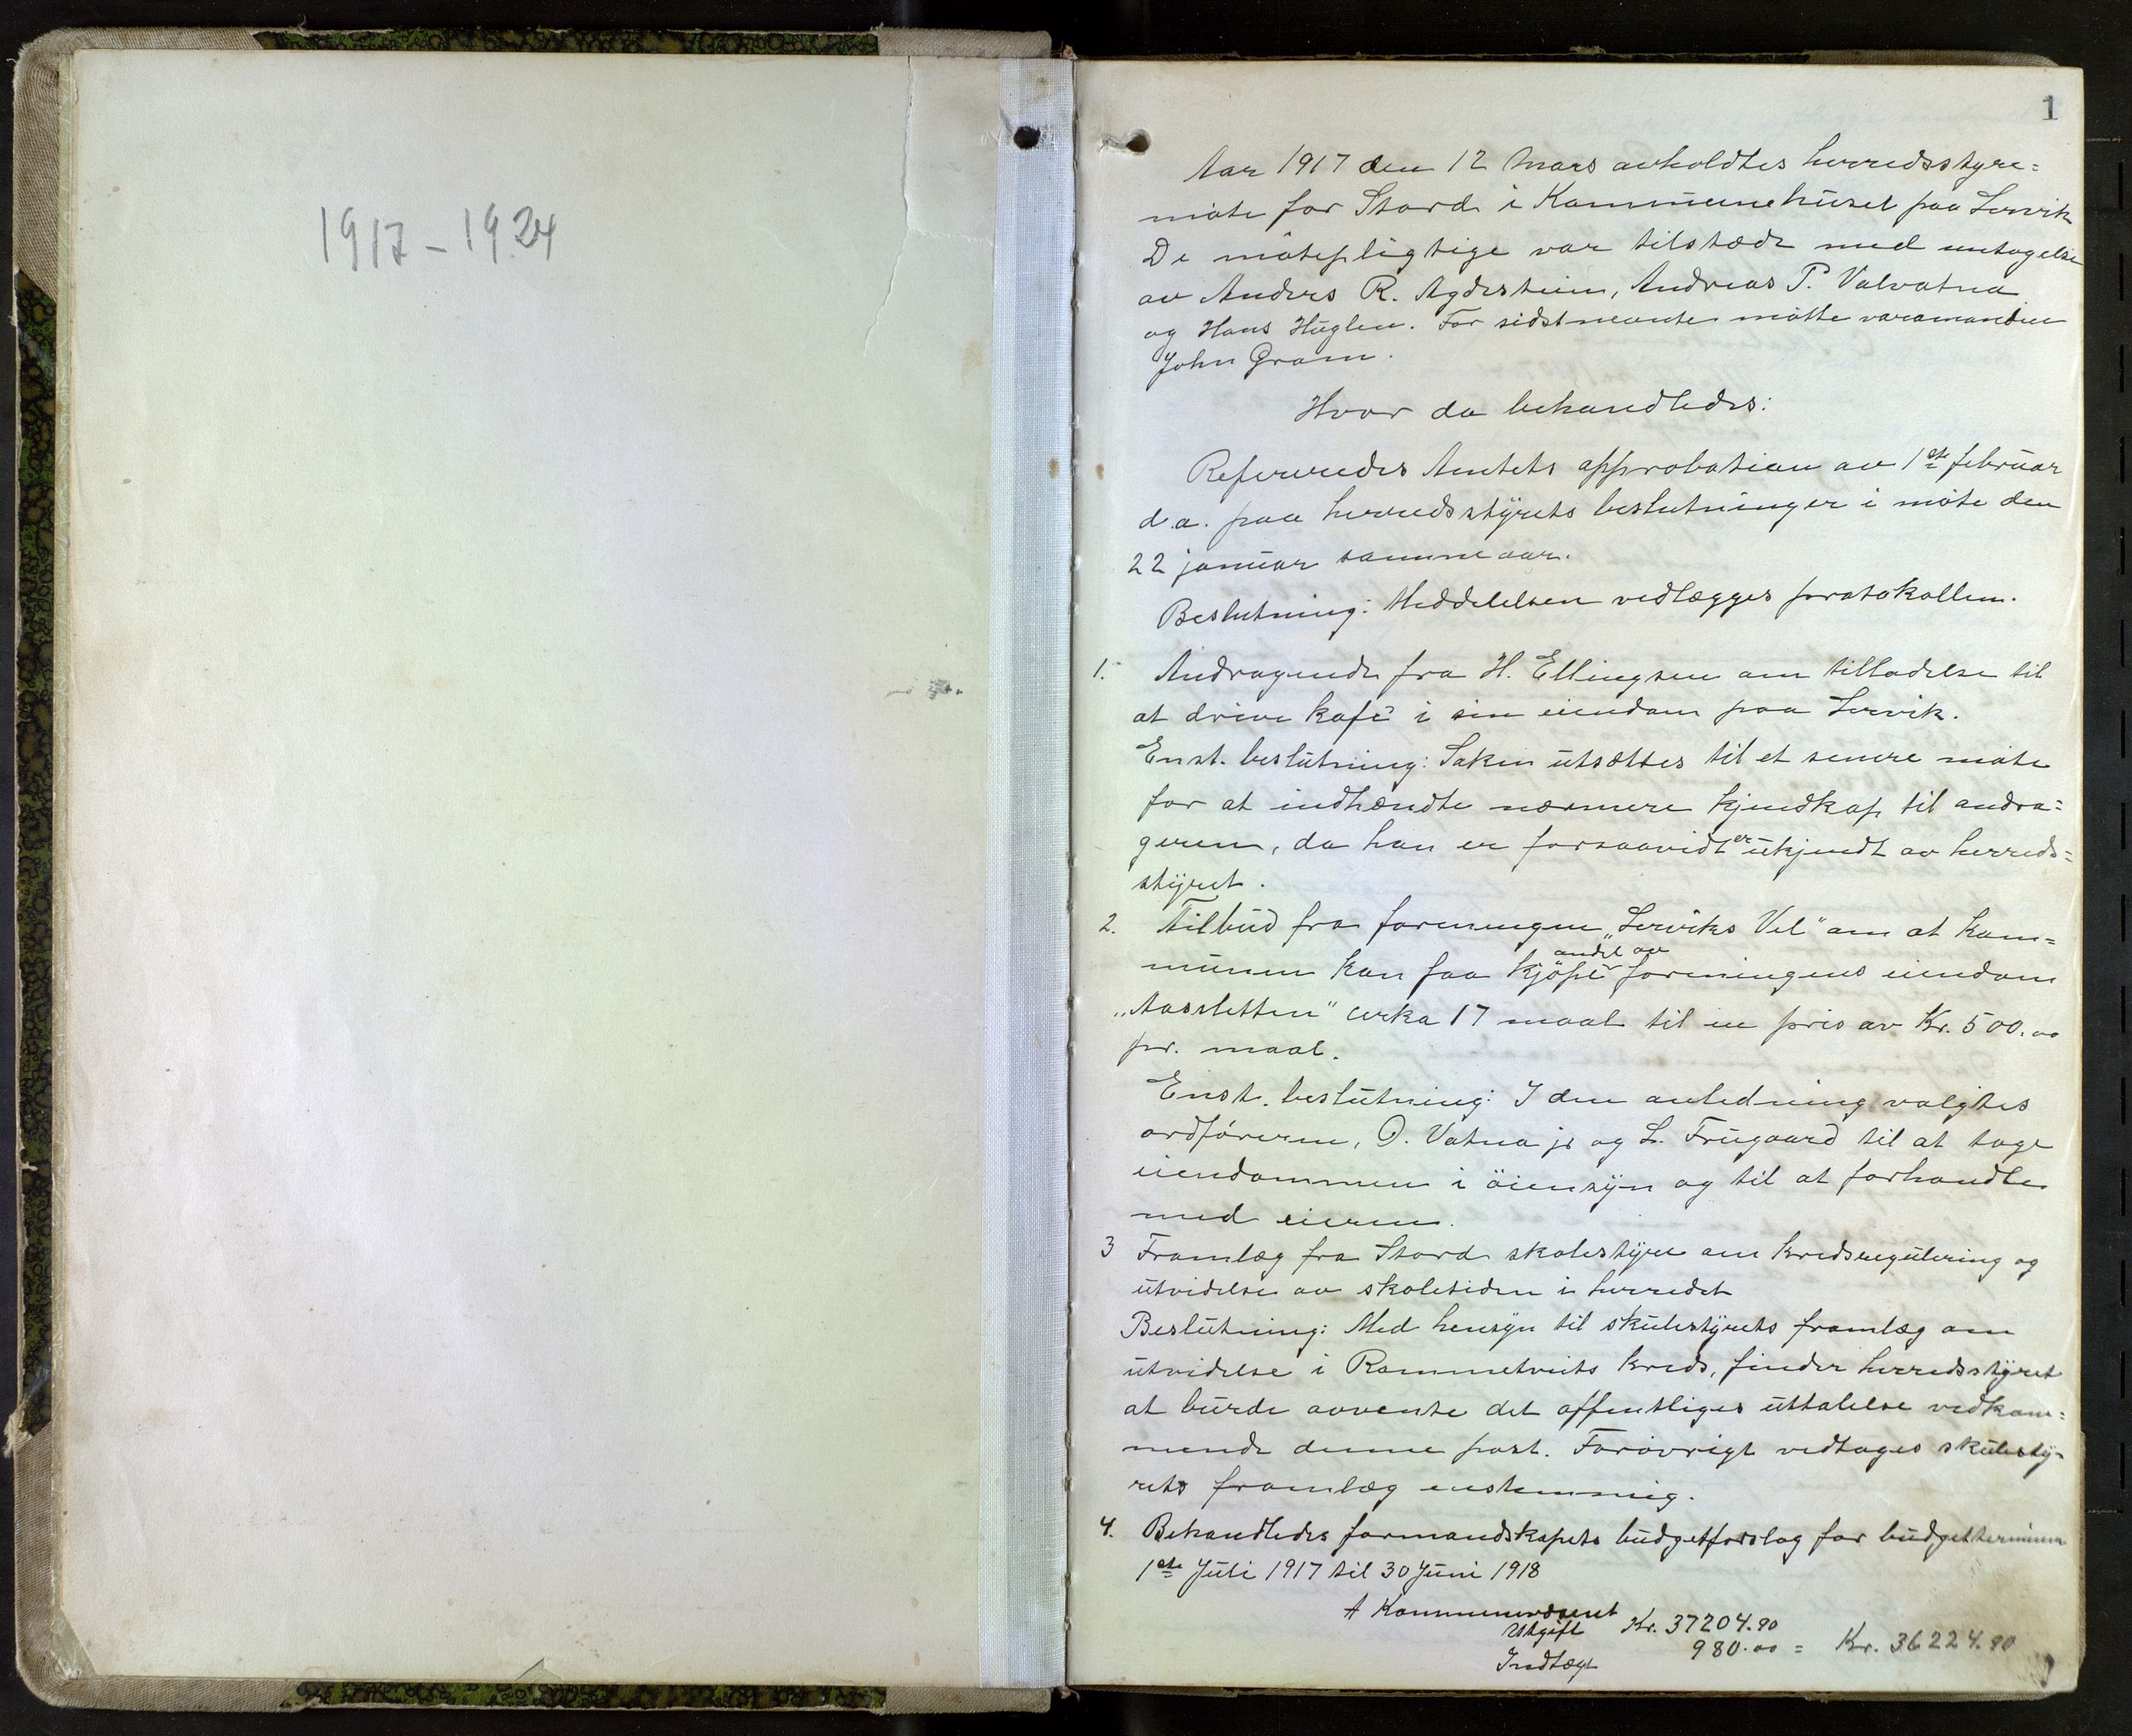 1917 - 1924
1
Aar 1917 den 12 mars avholdtes herredsstyre=
møte for Stord i Kommunehuset paa Lervik
De møtepligtige var tilstæde med untagelse
av Anders R. Agdestein, Andreas P. Valvatna
og Hans Huglen. For sidstnevnte møtte varamanden
John Gram.
Hvor da behandledes:
Refereredes Amtets approbation av 1ste februar
d.a. paa herredsstyrets beslutninger i møte den
22 januar samme aar.
Beslutning: Meddelelsen vedlægges protokollen.
1. Andragende fra H. Ellingsen om tilladelse til
at drive kafé i sin eiendom paa Lervik.
Enst. beslutning: Saken utsættes til et senere møte
for at indhændte nærmere kjendkap til andra=
geren, da han er forsaavidt er ukjendt av herreds=
styret.
2. Tilbud fra foreningen "Lerviks Vel" om at kom=
munen kan faa kjøpe andel av foreningens eiendom
"Aasletten" cirka 17 maal til en pris av Kr. 500.00
pr. maal.
Enst. beslutning: I den anledning valgtes
ordføreren, O. Vatna jr og L. Frugaard til at tage
eiendommen i øiensyn og til at forhandle
med eieren.
3 Framlæg fra Stord skolestyre om kredsregulering og
utvidelse av skoletiden i herredet
Beslutning: Med hensyn til skulestyrets framlæg om
utvidelse i Rommetveits kreds, finder herredsstyret
at burde avvente det offentliges uttalelse vedkom=
mende denne post. Forøvrigt vedtages skulesty-
rets framlæg enstemmig.
4. Behandledes formandskapets budgetforslag for budgetterminen
1ste Juli 1917 til 30 Juni 1918
A Kommunevæsenet
Utgift Kr. 37204.90
Indtægt 980.00 = Kr. 36224.90